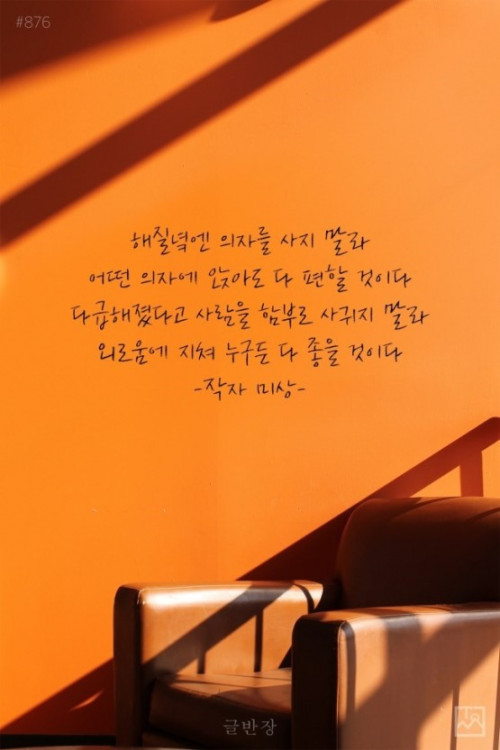 #876
해질녘엔 의자를 사지 말라
어떤 의자에 앉아도 다 편할 것이다
다급해졌다고 사람을 함부로 사귀지 말라
외로움에 지쳐 누구든 다 좋을 것이다
-작자 미상-
글반장